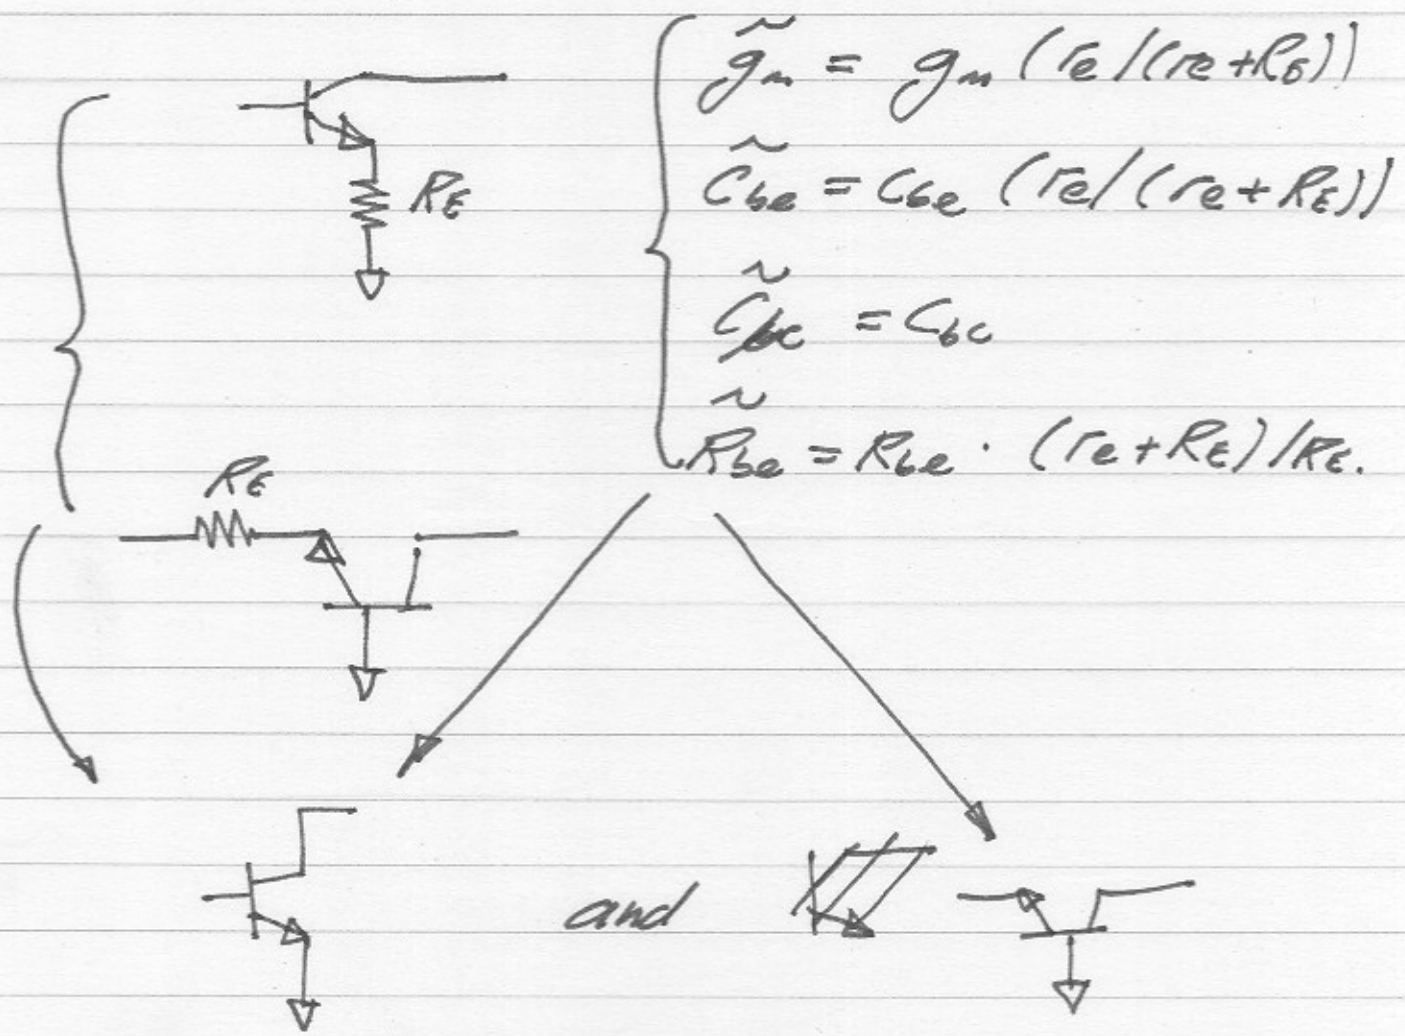 g̃m = gm (re/(re+RE))
RE
C̃be = Cbe (re/(re+RE))
C̃bc = Cbc
R̃be = Rbe · (re+RE)/RE.
RE
and